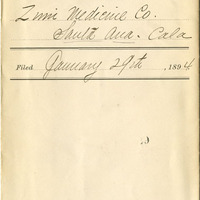 Zuni Medicine Co.
Santa Ana. Cala
Filed January 29th, 1894